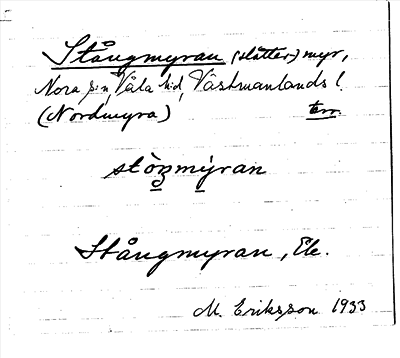 Stångmyran (slåtter-) myr,
Nora sn, Våla hd, Västmanlands l.
(Nordmyra) terr.
stòŋmýran
Stångmyran, Ek.
M. Eriksson 1933